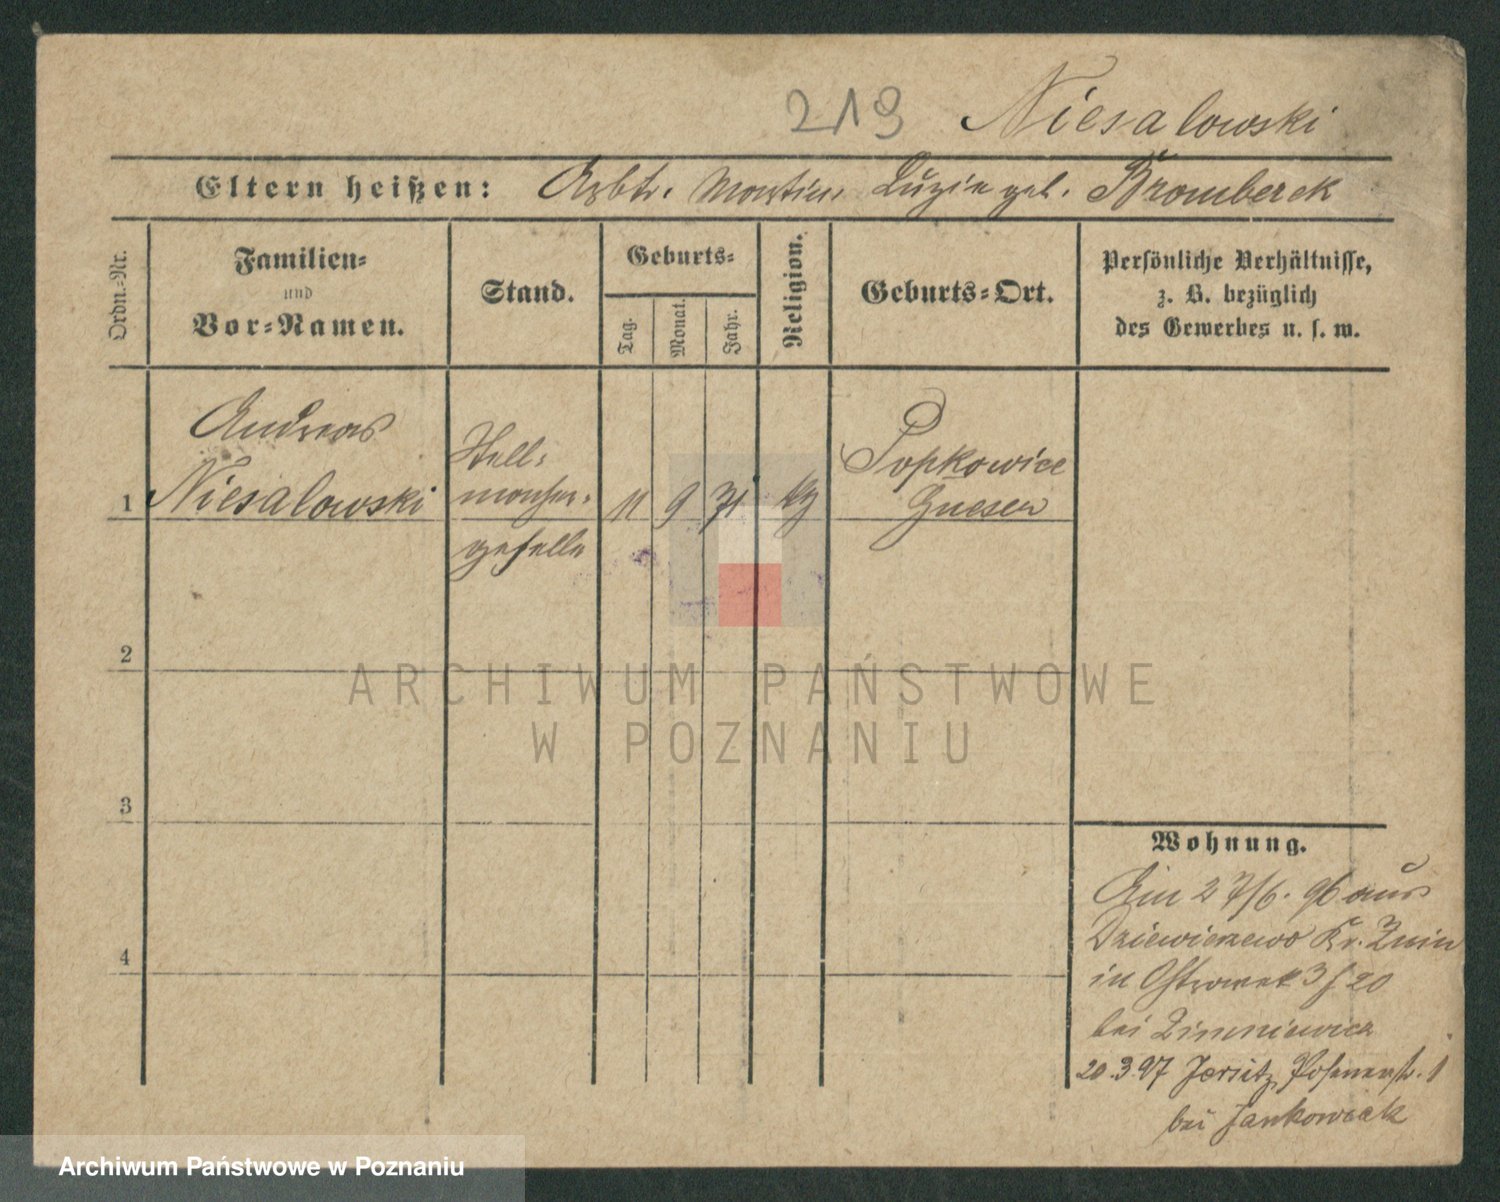 219 Niesalowski
Eltern heißen: Arbtr. Martin, Luzia geb. Bromberek
Ordn.-Nr.
Familien-
und
Vor-Namen.
Stand.
Geburts-
Tag.
Monat.
Jahr.
Religion.
Geburts-Ort.
Persönliche Verhältnisse,
z. B. bezüglich
des Gewerbes u. s. w.
Andreas
Niesalowski
Stell-
macher-
geselle
1
11 9 71
Popkowice
Gnesen
2
3
4
Wohnung.
Am 27/6. 96 aus
Dziewierzewo Kr. Znin
in Ostrowek 3 f 20
bei Zimniewicz
20.3.97 Jersitz, Posenerstr. 1
bei Jankowiak
ARCHIWUM PAŃSTWOWE
W POZNANIU
Archiwum Państwowe w Poznaniu